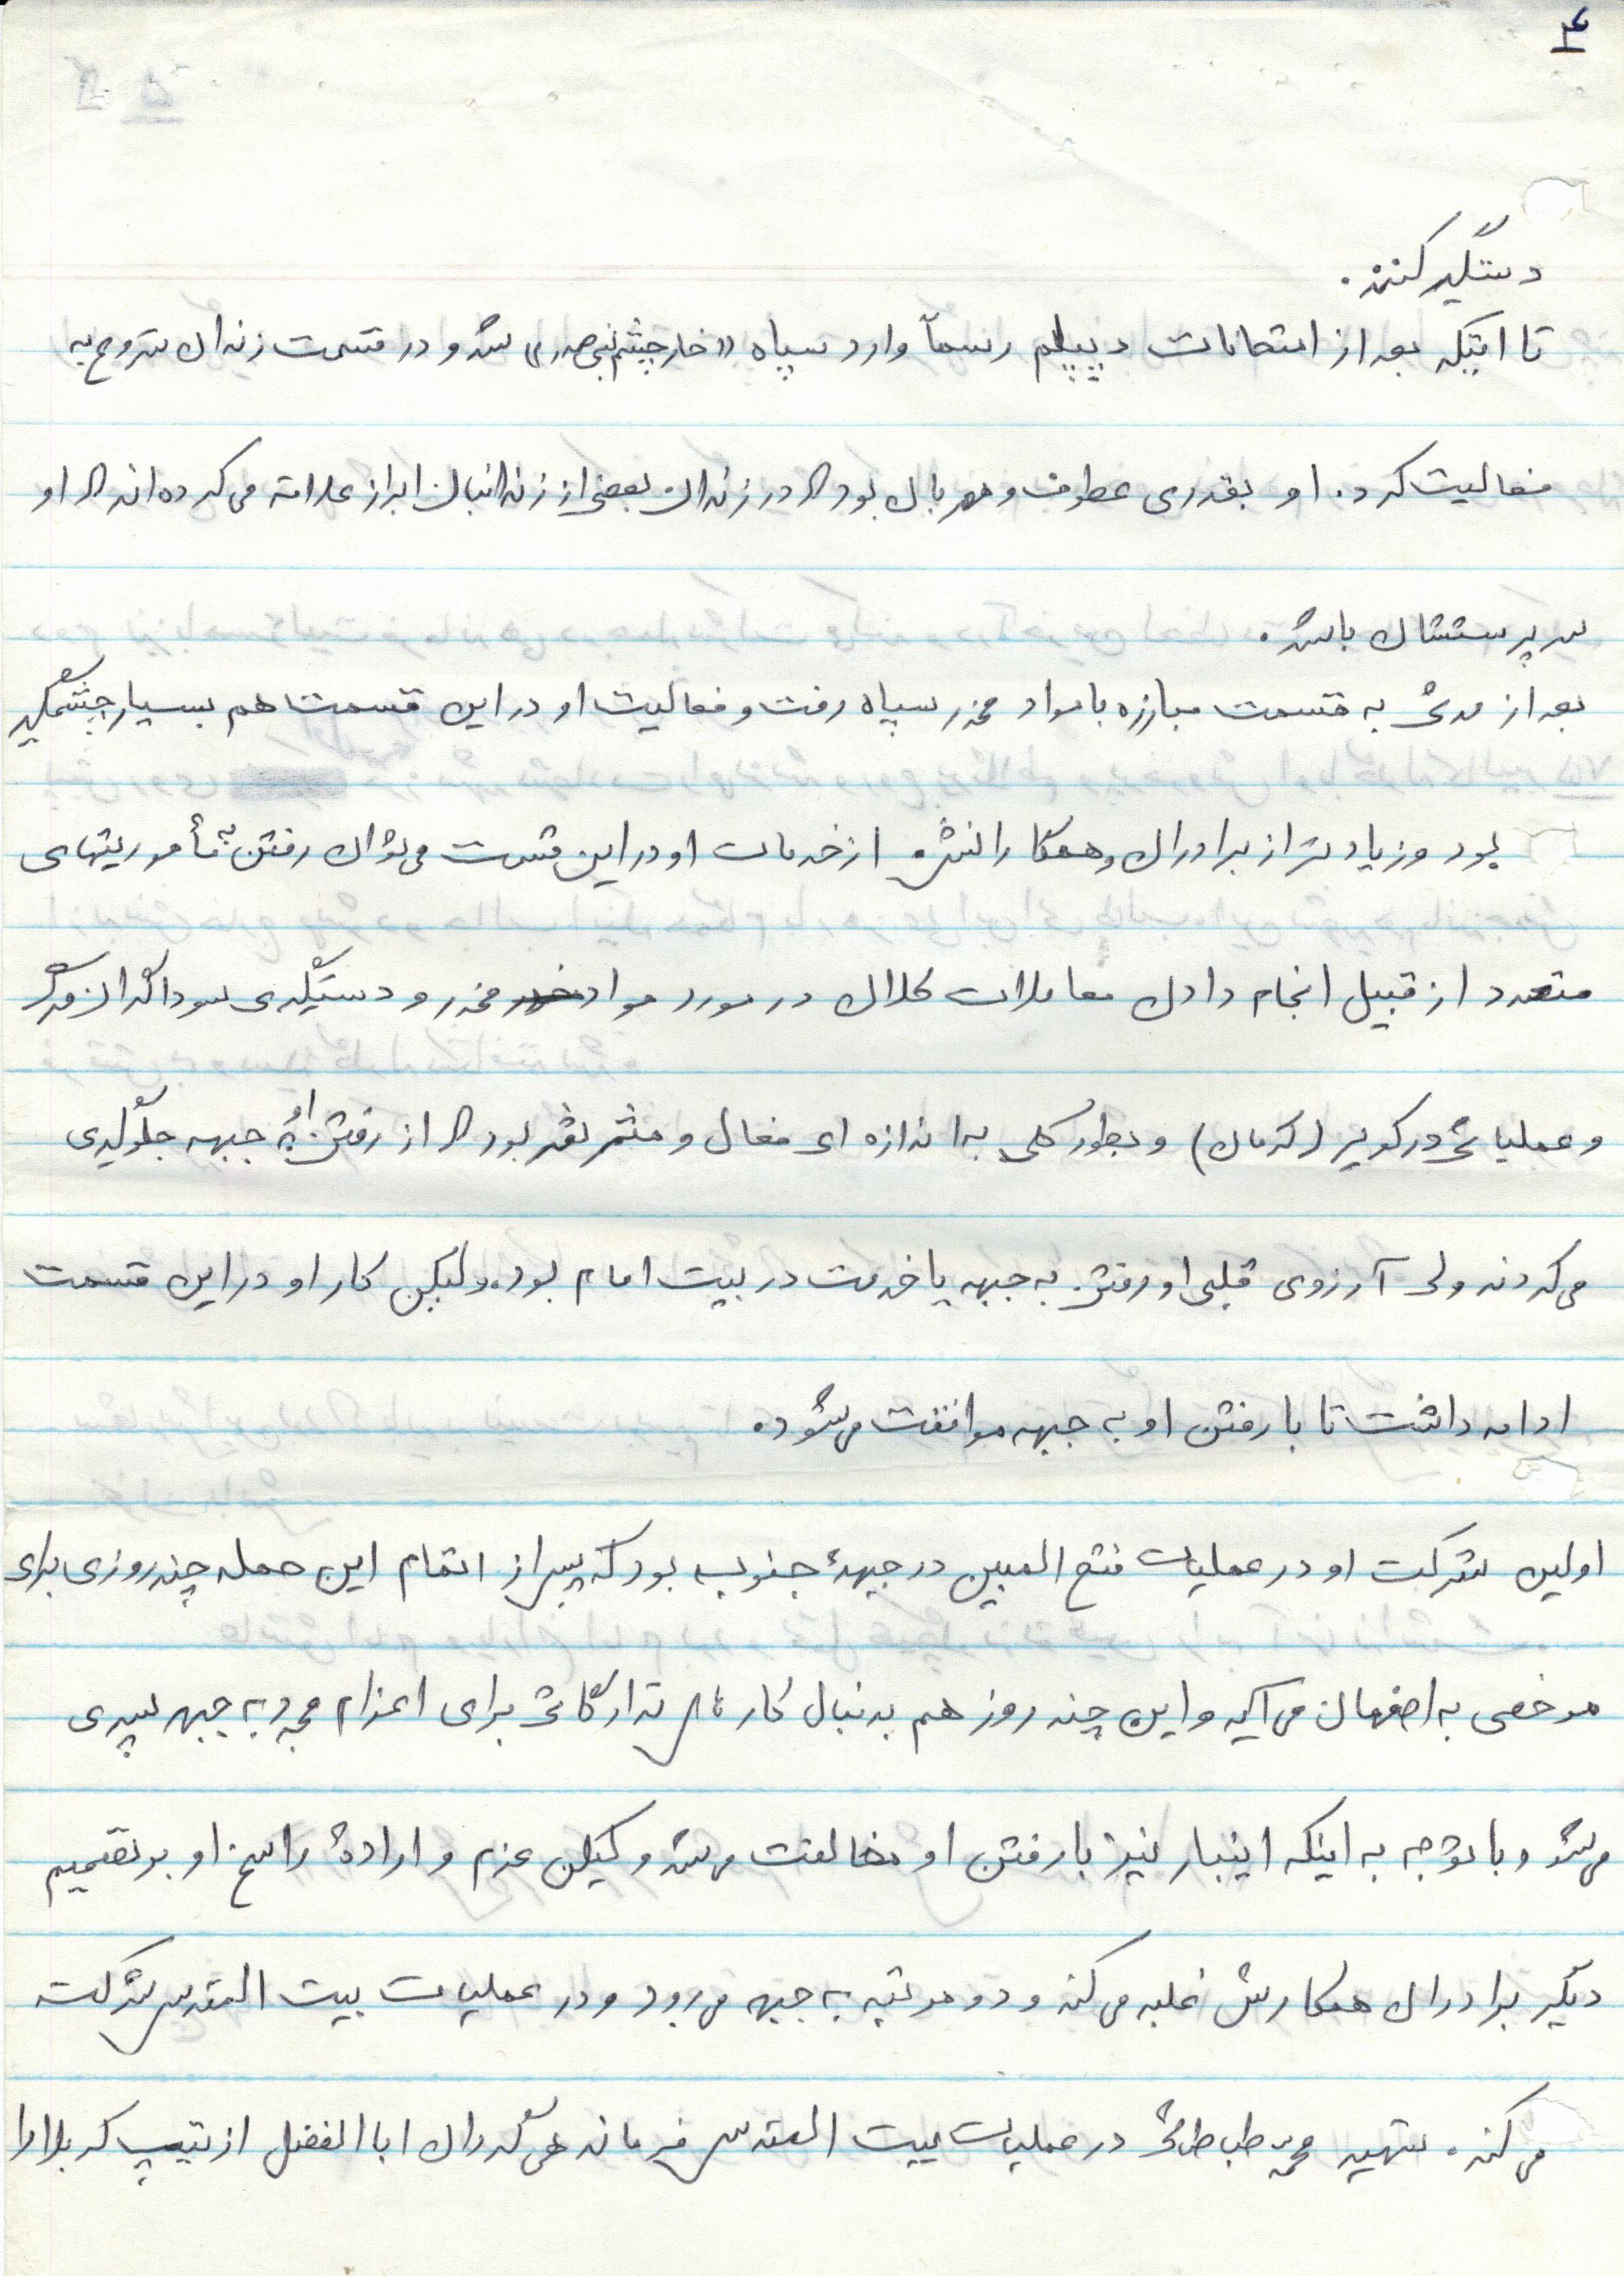 ۴
دستگیر کنند.
تا اینکه بعد از امتحانات دیپلم رسماً وارد سپاه «خار چشم بنی صدر» شد و در قسمت زندان شروع به
فعالیت کرد. او بقدری عطوف و مهربان بود که در زندان بعضی از زندانبان ابراز علاقه می‌کرده‌اند که او
سرپرستشان باشد.
بعد از مدتی به قسمت مبارزه با مواد مخدر سپاه رفت و فعالیت او در این قسمت هم بسیار چشمگیر
بود و زیادتر از برادران و همکارانش. از خدمات او در این قسمت می‌توان رفتن به مأموریتهای
متعدد از قبیل انجام دادن معاملات کلان در مورد مواد مخدر و دستگیری سوداگران مرگ
و عملیاتی در کویر (کرمان) و بطور کلی به اندازه‌ای فعال و مثمر ثمر بود که از رفتن او به جبهه جلوگیری
می‌کردند ولی آرزوی قلبی او رفتن به جبهه یا خدمت در بیت امام بود. ولیکن کار او در این قسمت
ادامه داشت تا با رفتن او به جبهه موافقت می‌شود.
اولین شرکت او در عملیات فتح المبین در جبههٔ جنوب بود که پس از اتمام این حمله چند روزی برای
مرخصی به اصفهان می‌آید و این چند روز هم بدنبال کارهای تدارکاتی برای اعزام مجدد به جبهه سپری
می‌شود و با توجه به اینکه اینبار نیز با رفتن او مخالفت می‌شد ولیکن عزم و ارادهٔ راسخ او بر تصمیم
دیگر برادران همکارش غلبه می‌کند و دو مرتبه به جبهه می‌رود و در عملیات بیت المقدس شرکت
می‌کند. شهید محمد طباطبائی در عملیات بیت المقدس فرماندهی گردان ابا الفضل از تیپ کربلا را